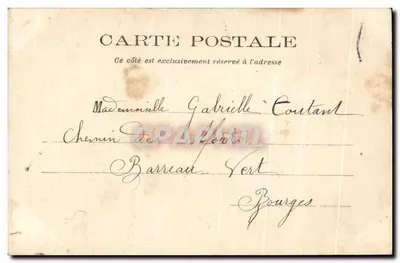 CARTE POSTALE
Ce côté est exclusivement réservé à l'adresse
Mademoiselle Gabrielle Coutant
Chemin de
Barreau Vert
Bourges